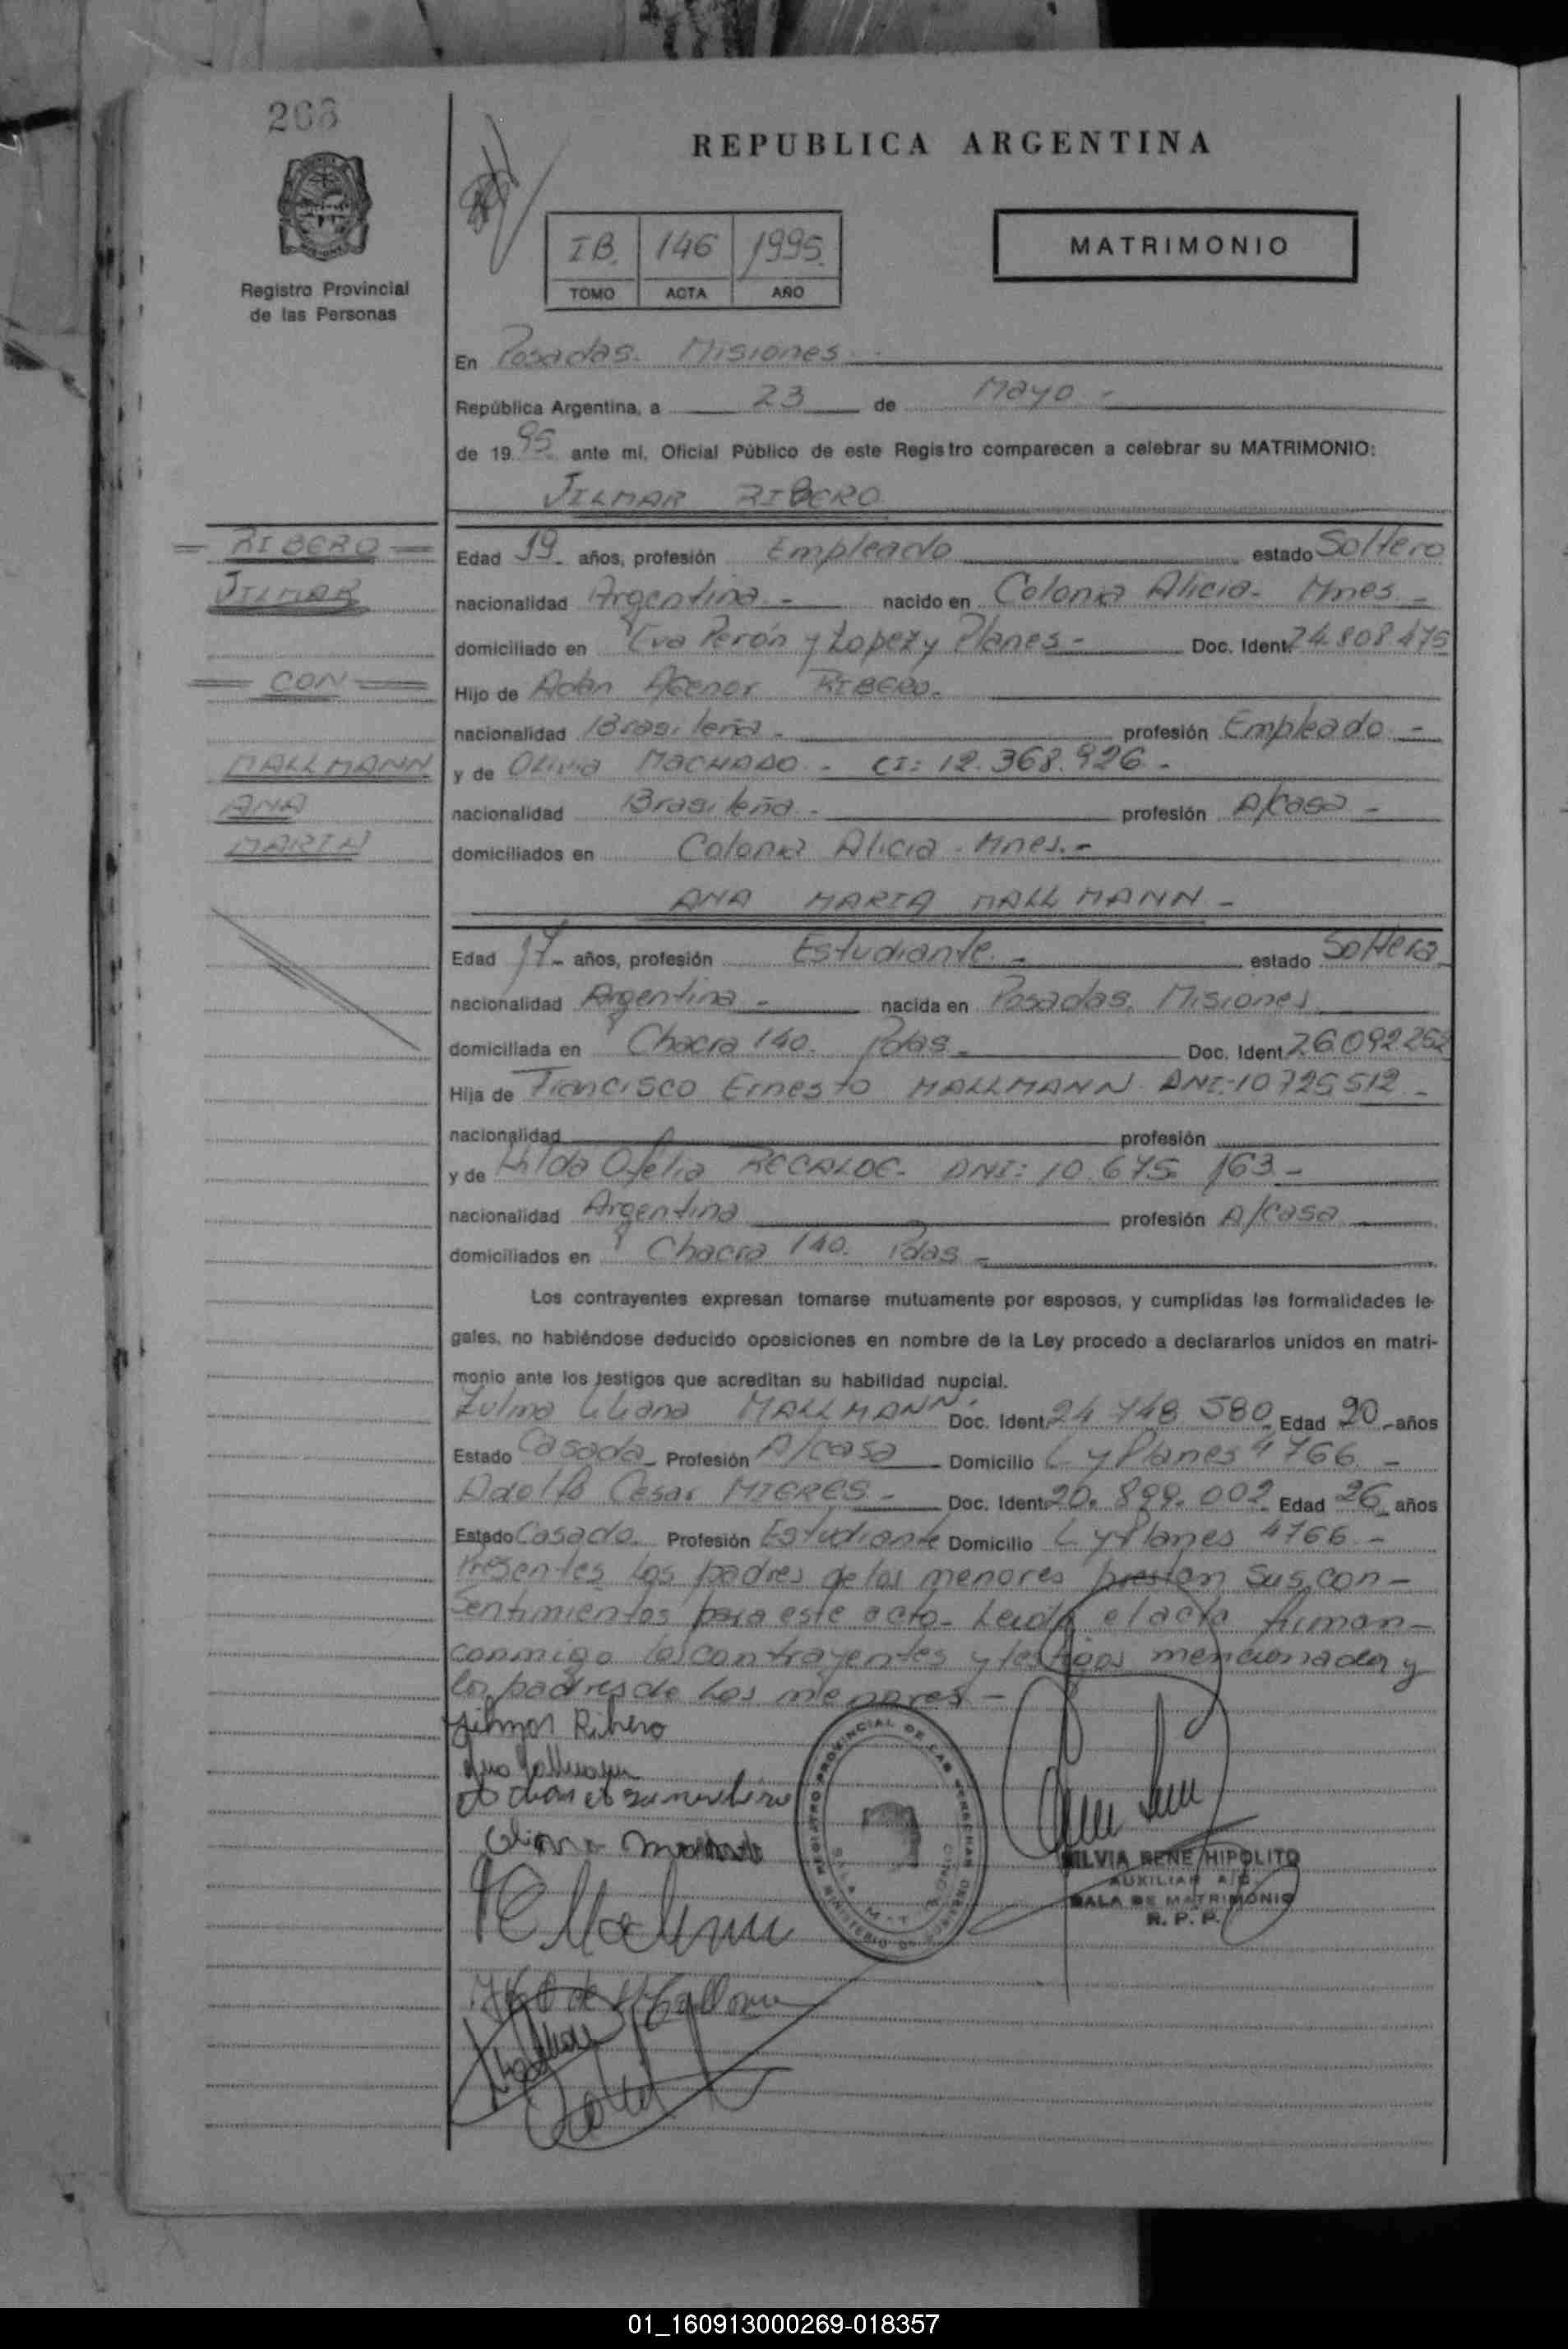 268
REPUBLICA ARGENTINA
IB. 146 1995.
TOMO ACTA AÑO
MATRIMONIO
Registro Provincial
de las Personas
En Posadas. Misiones.
República Argentina, a 23 de Mayo -
de 1995 ante mi, Oficial Público de este Registro comparecen a celebrar su MATRIMONIO:
JILMAR RIBERO
= RIBERO =
JILMAR
= CON =
MALLMANN
ANA
MARIA
Edad 19 años, profesión Empleado estado Soltero
nacionalidad Argentina - nacido en Colonia Alicia - Mnes. -
domiciliado en Eva Perón y Lopez y Planes - Doc. Ident. 24.808.475
Hijo de Adan Agenor RIBERO.
nacionalidad Brasileña - profesión Empleado -
y de Olivia MACHADO - CI: 12.368.926 -
nacionalidad Brasileña - profesión A/casa -
domiciliados en Colonia Alicia - Mnes. -
ANA MARIA MALLMANN -
Edad 17- años, profesión Estudiante - estado Soltera
nacionalidad Argentina - nacida en Posadas. Misiones
domiciliada en Chacra 140. Pdas - Doc. Ident. 26.092.252
Hija de Francisco Ernesto MALLMANN DNI: 10.725.512 -
nacionalidad profesión
y de Hilda Ofelia RECALDE - DNI: 10.675.163 -
nacionalidad Argentina profesión A/casa
domiciliados en Chacra 140. Pdas -
Los contrayentes expresan tomarse mutuamente por esposos, y cumplidas las formalidades le-
gales, no habiéndose deducido oposiciones en nombre de la Ley procedo a declararlos unidos en matri-
monio ante los testigos que acreditan su habilidad nupcial.
Zulma Liliana MALLMANN. Doc. Ident. 24.748.580 Edad 20 años
Estado Casada Profesión A/casa Domicilio L y Planes 4766 -
Adolfo Cesar MIERES - Doc. Ident. 20.899.002 Edad 26 años
Estado Casado Profesión Estudiante Domicilio L y Planes 4766 -
Presentes los padres de los menores prestan sus con-
sentimientos para este acto - Leida el acta firman
conmigo los contrayentes y testigos mencionados y
los padres de los menores -
Jilmar Ribero
Ana Mallmann
REGISTRO PROVINCIAL DE LAS PERSONAS
SILVIA RENE HIPOLITO
AUXILIAR A/C
SALA DE MATRIMONIO
R. P. P.
01_160913000269-018357